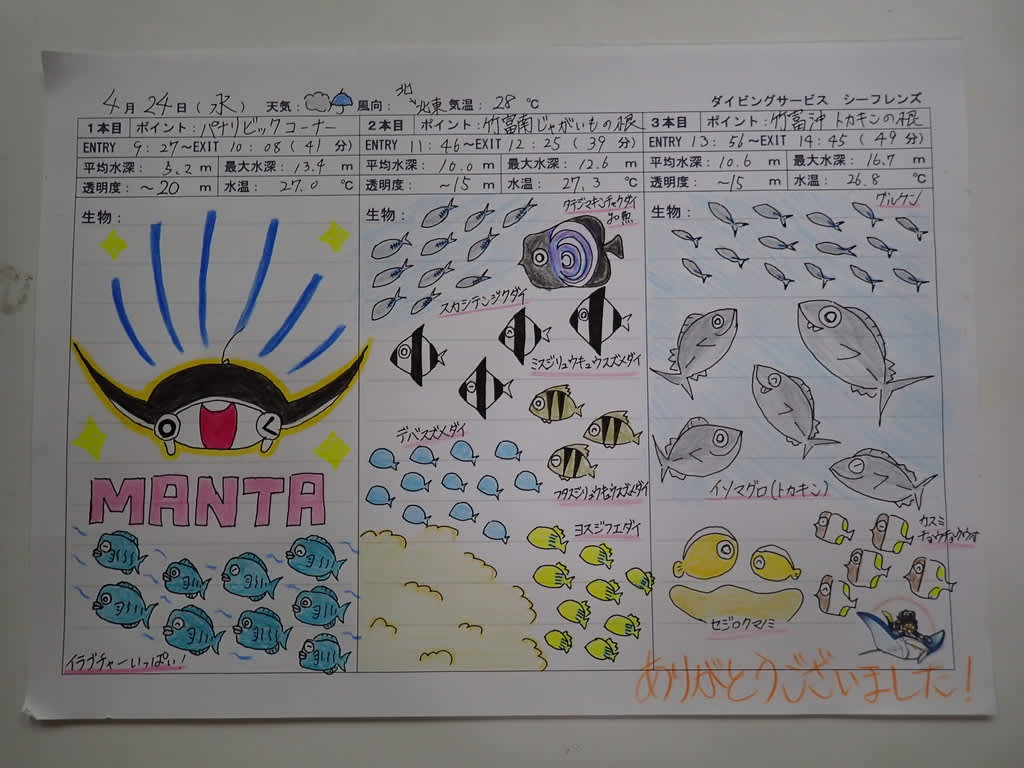 4月24日(水) 天気: 風向: 北〜北東 気温: 28℃ ダイビングサービス シーフレンズ
1本目 ポイント: パナリビックコーナー
ENTRY 9:27〜EXIT 10:08 (41分)
平均水深: 5.2m 最大水深: 13.4m
透明度: ~20m 水温: 27.0℃
生物:
MANTA
イラブチャーいっぱい!
2本目 ポイント: 竹富南じゃがいもの根
ENTRY 11:46〜EXIT 12:25 (39分)
平均水深: 10.0m 最大水深: 12.6m
透明度: ~15m 水温: 27.3℃
生物:
タテジマキンチャクダイ
幼魚
スカシテンジクダイ
ミスジリュウキュウスズメダイ
デバスズメダイ
フタスジリュウキュウスズメダイ
ヨスジフエダイ
3本目 ポイント: 竹富沖 トカキンの根
ENTRY 13:56〜EXIT 14:45 (49分)
平均水深: 10.6m 最大水深: 16.7m
透明度: ~15m 水温: 26.8℃
生物:
グルクン
イソマグロ(トカキン)
カスミ
チョウチョウウオ
セジロクマノミ
ありがとうございました!